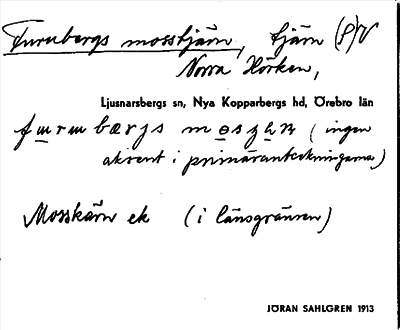 Furubergs mosstjärn, tjärn (S)V
Norra Hörken,
Ljusnarsbergs sn, Nya Kopparbergs hd, Örebro län
(ingen
aksent i primäranteckningarna)
Mosskärn ek (i länsgränsen)
JÖRAN SAHLGREN 1913